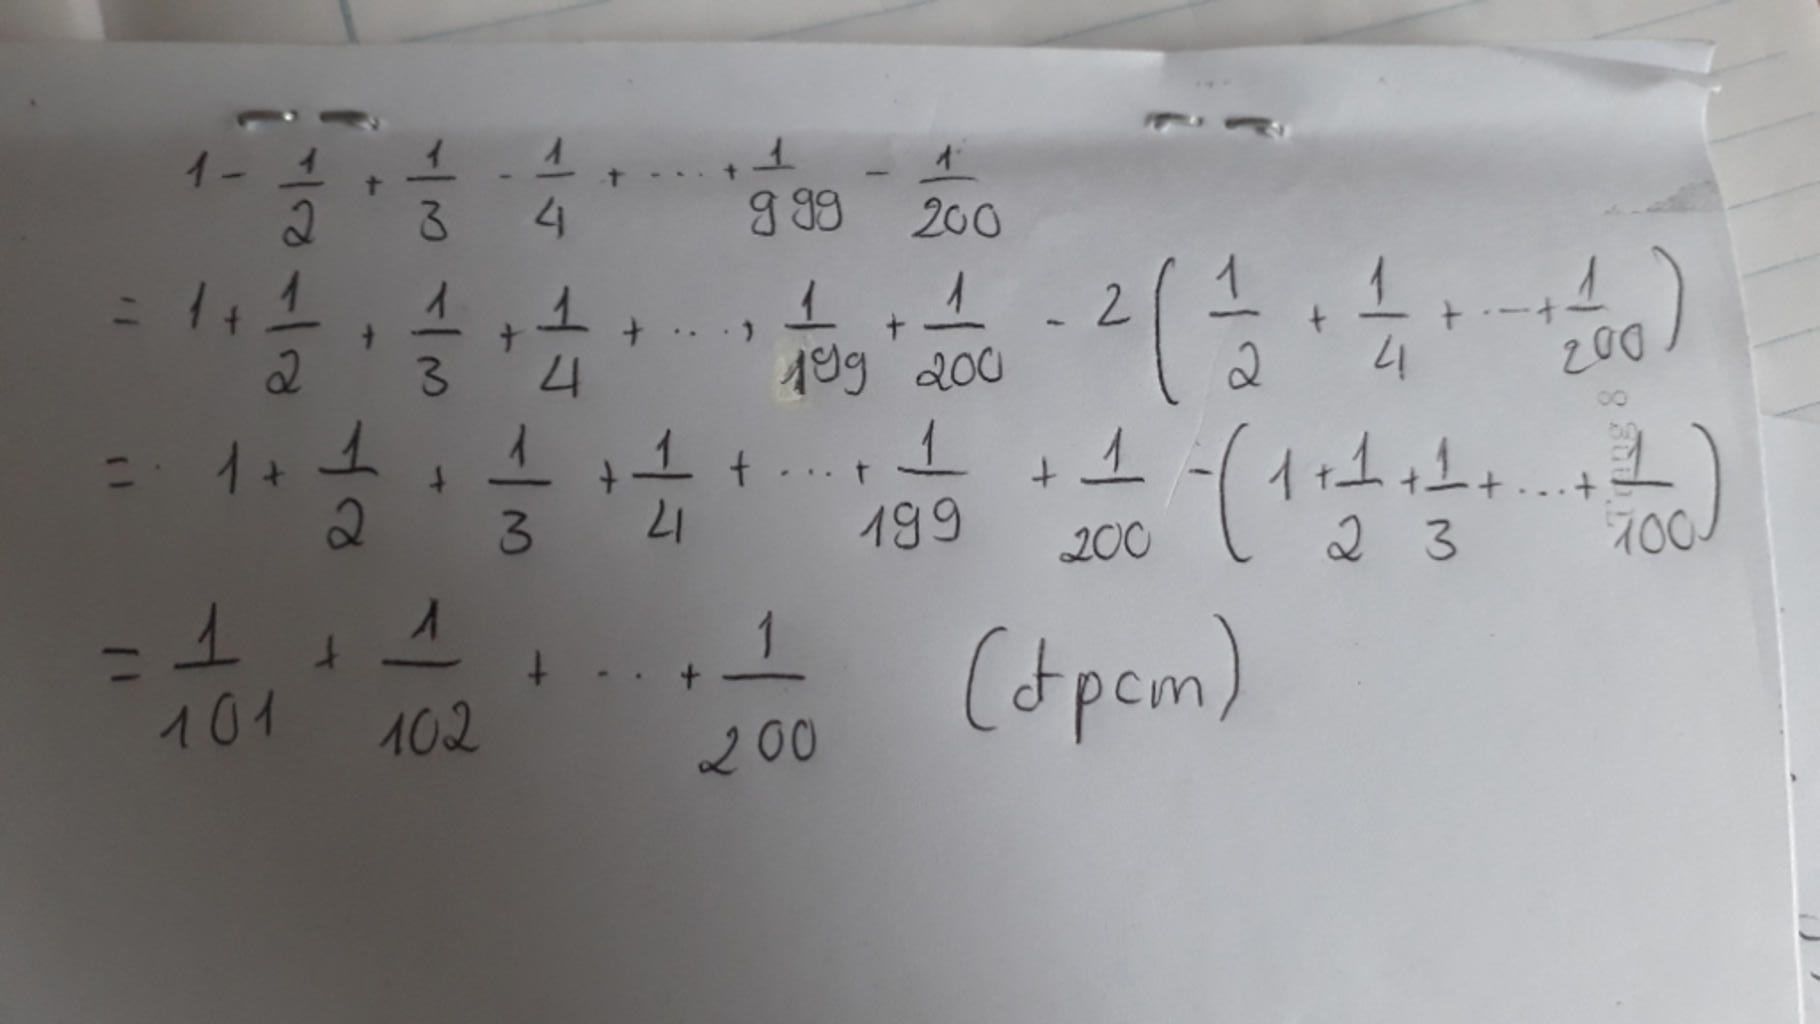 1 - 1/2 + 1/3 - 1/4 + ... + 1/999 - 1/200
= 1 + 1/2 + 1/3 + 1/4 + ... , 1/199 + 1/200 - 2 ( 1/2 + 1/4 + ... + 1/200 )
= 1 + 1/2 + 1/3 + 1/4 + ... + 1/199 + 1/200 - ( 1 + 1/2 + 1/3 + ... + 1/100 )
= 1/101 + 1/102 + ... + 1/200 (đpcm)